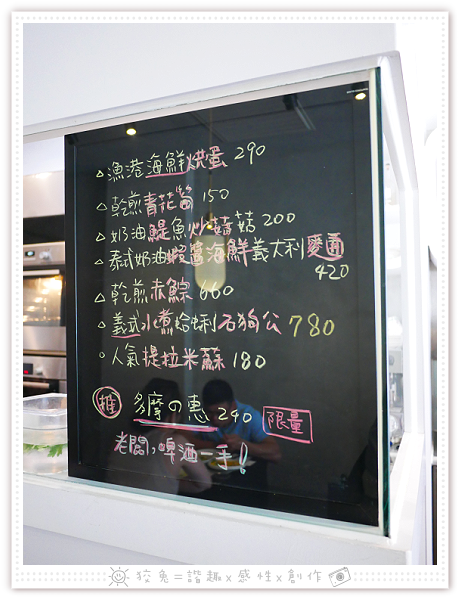 △漁港海鮮烘蛋 290
△乾煎青花魚 150
△奶油鯷魚炒蘑菇 200
△泰式奶油蝦醬海鮮義大利麵
420
△乾煎赤鯮 660
△義式水煮蛤蜊石狗公 780
○人氣提拉米蘇 180
推 多摩の惠 240 限量
老闆,啤酒一手!
狡兔=諧趣x感性x創作